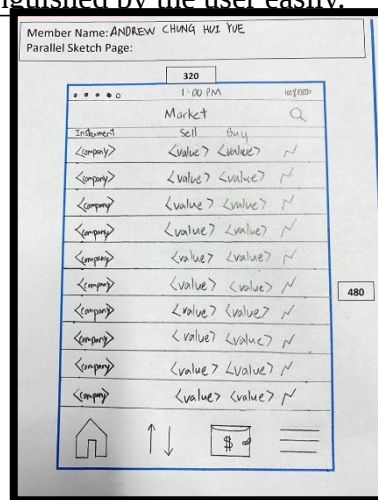 guished by the user easily.
Member Name: ANDREW CHUNG HUI YUE
Parallel Sketch Page:
320
1:00 PM
Market
Instrument Sell Buy
<company> <value> <value>
<company> <value> <value>
<company> <value> <value>
<company> <value> <value>
<company> <value> <value>
<company> <value> <value>
480
<company> <value> <value>
<company> <value> <value>
<company> <value> <value>
<company> <value> <value>
$